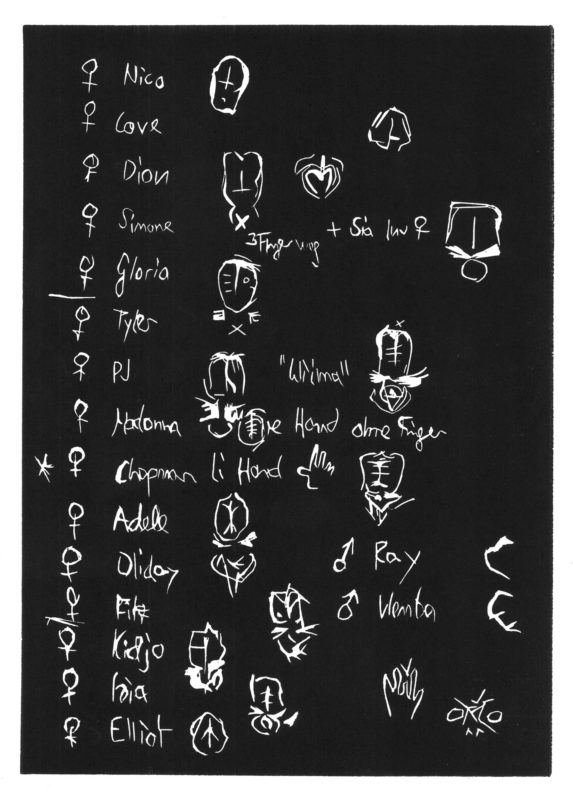 ♀ Nico
♀ Love
♀ Dion
♀ Simone + Sia luv ♀
3 Finger weg
♀ Gloria
♀ Tyler
♀ PJ "Wilma"
♀ Madonna Hand ohne Finger
♀ Chapman li Hand
♀ Adele
♀ Oliday ♂ Ray
♀ ♂ Wemba
♀ Kidjo
♀
♀ Elliot